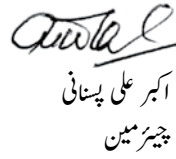 اکبر علی پسنانی
چیئرمین